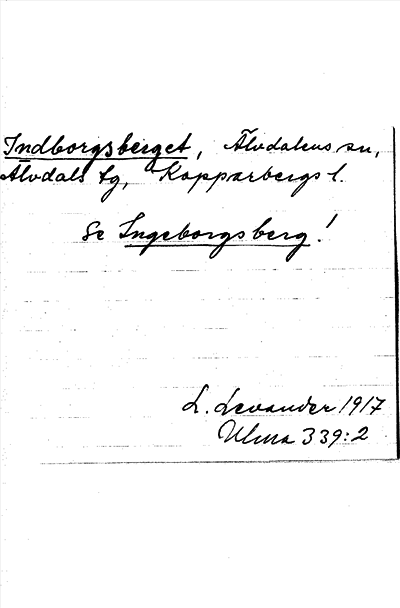 Indborgsberget, Älvdalens sn,
Älvdals tg, Kopparbergs l.
Se Ingeborgsberg!
L. Levander 1917
Ulma 339:2